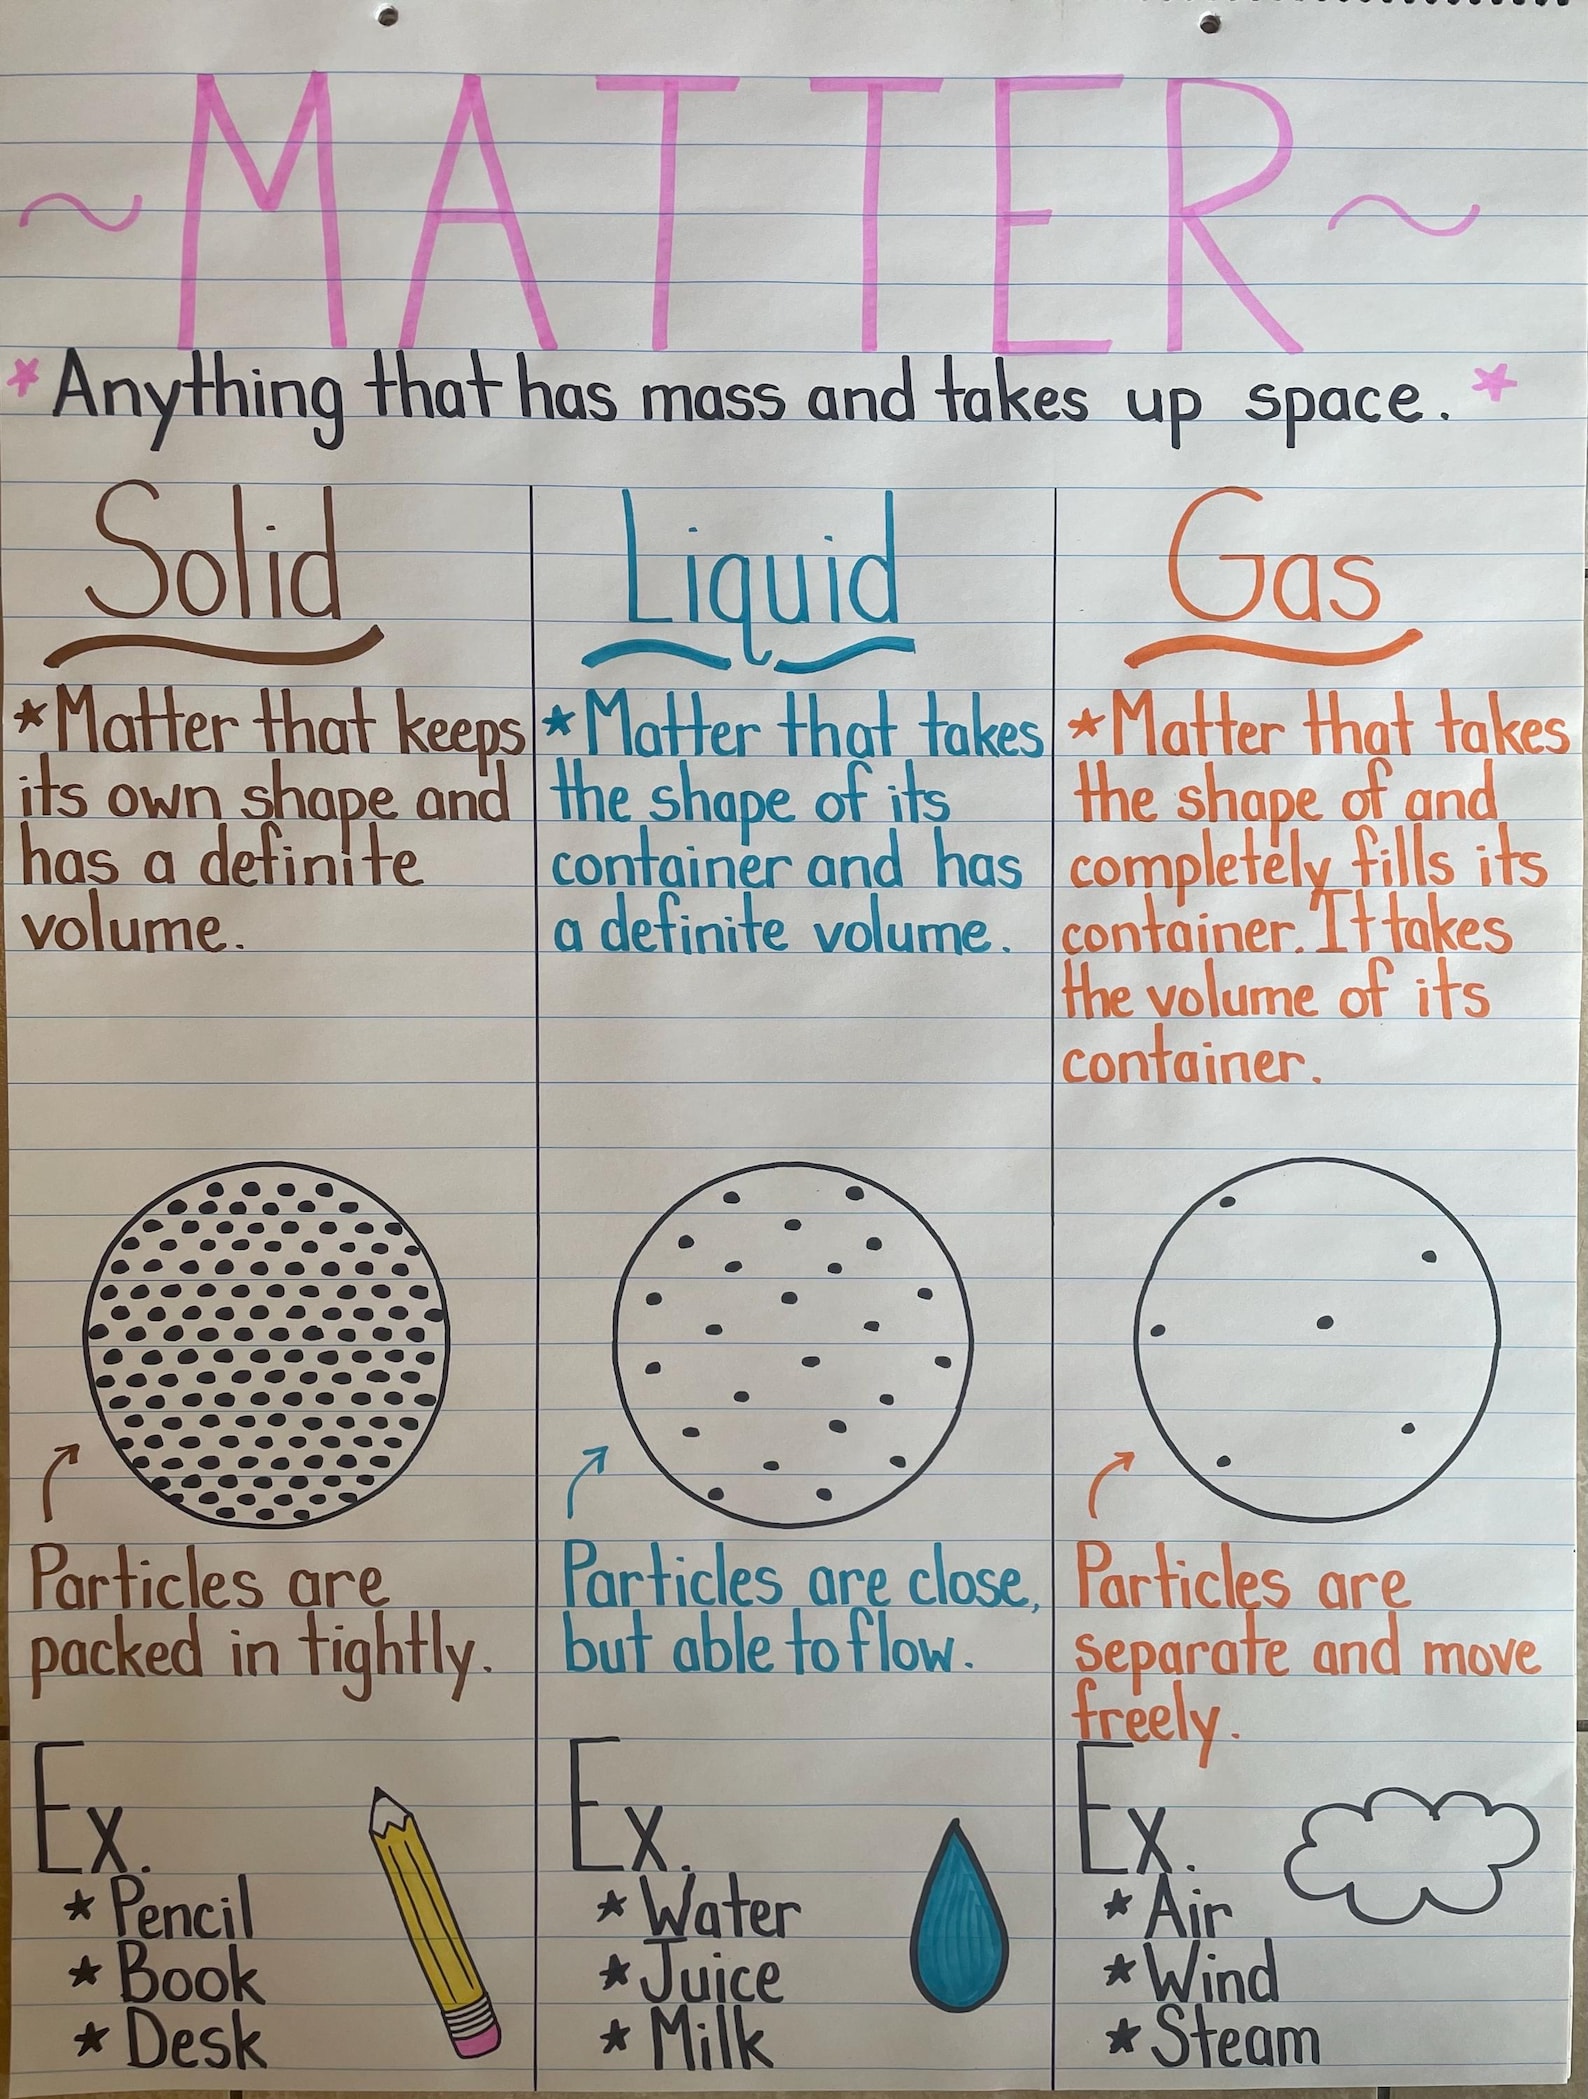 ~MATTER~
*Anything that has mass and takes up space.*
Solid
*Matter that keeps
its own shape and
has a definite
volume.
Particles are
packed in tightly.
Ex.
*Pencil
*Book
*Desk
Liquid
*Matter that takes
the shape of its
container and has
a definite volume.
Particles are close,
but able to flow.
Ex.
*Water
*Juice
*Milk
Gas
*Matter that takes
the shape of and
completely fills its
container. It takes
the volume of its
container.
Particles are
separate and move
freely.
Ex.
*Air
*Wind
*Steam